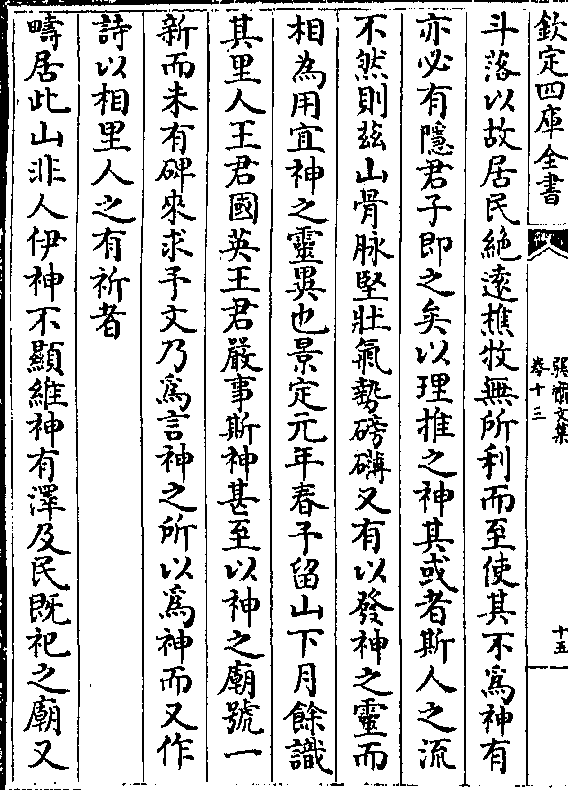 欽定四庫全書
巽齋文集
卷十三
十五
斗落以故居民絶逺樵牧無所利而至使其不為神有
亦必有隱君子即之矣以理推之神其或者斯人之流
不然則兹山骨脉堅壯氣勢磅礴又有以發神之靈而
相為用宜神之靈異也景定元年春予留山下月餘識
其里人王君國英王君嚴事斯神甚至以神之廟號一
新而未有碑來求予文乃爲言神之所以爲神而又作
詩以相里人之有祈者
疇居此山非人伊神不顯維神有澤及民既祀之廟又